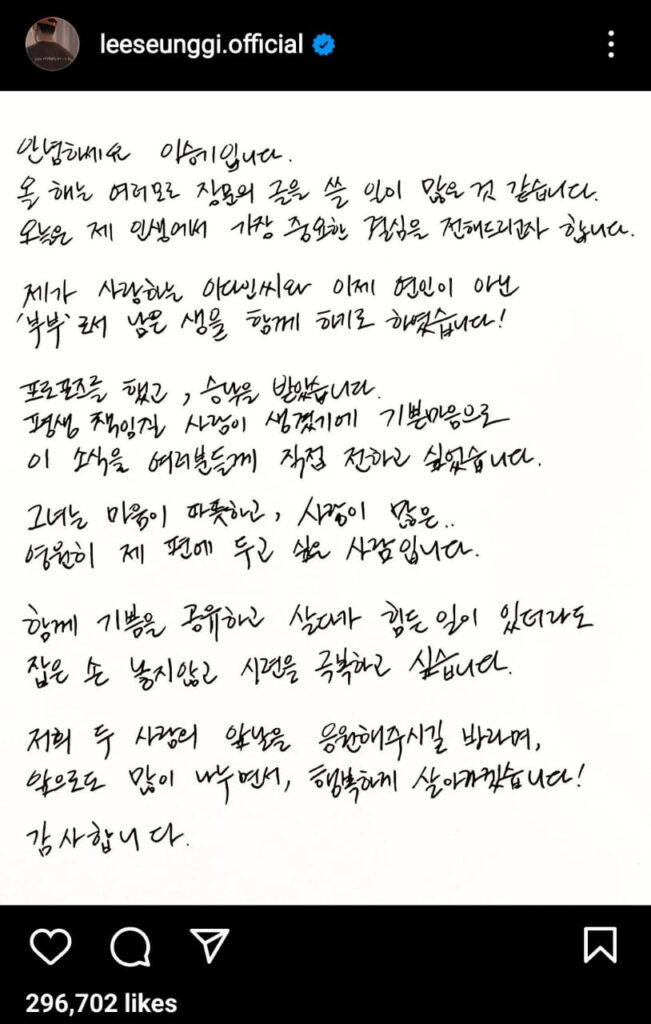 leeseunggi.official
안녕하세요 이승기입니다.
올 해는 여러모로 장문의 글을 쓸 일이 많은 것 같습니다.
오늘은 제 인생에서 가장 중요한 결심을 전해드리고자 합니다.
제가 사랑하는 이다인씨와 이제 연인이 아닌
'부부'로서 남은 생을 함께 하기로 하였습니다!
프로포즈를 했고, 승낙을 받았습니다.
평생 책임질 사람이 생겼기에 기쁜마음으로
이 소식을 여러분들께 직접 전하고 싶었습니다.
그녀는 마음이 따뜻하고, 사랑이 많은..
영원히 제 편에 두고 싶은 사람입니다.
함께 기쁨을 공유하고 살다가 힘든 일이 있더라도
잡은 손 놓지않고 시련을 극복하고 싶습니다.
저희 두 사람의 앞날을 응원해주시길 바라며,
앞으로도 많이 나누면서, 행복하게 살아가겠습니다!
감사합니다.
296,702 likes